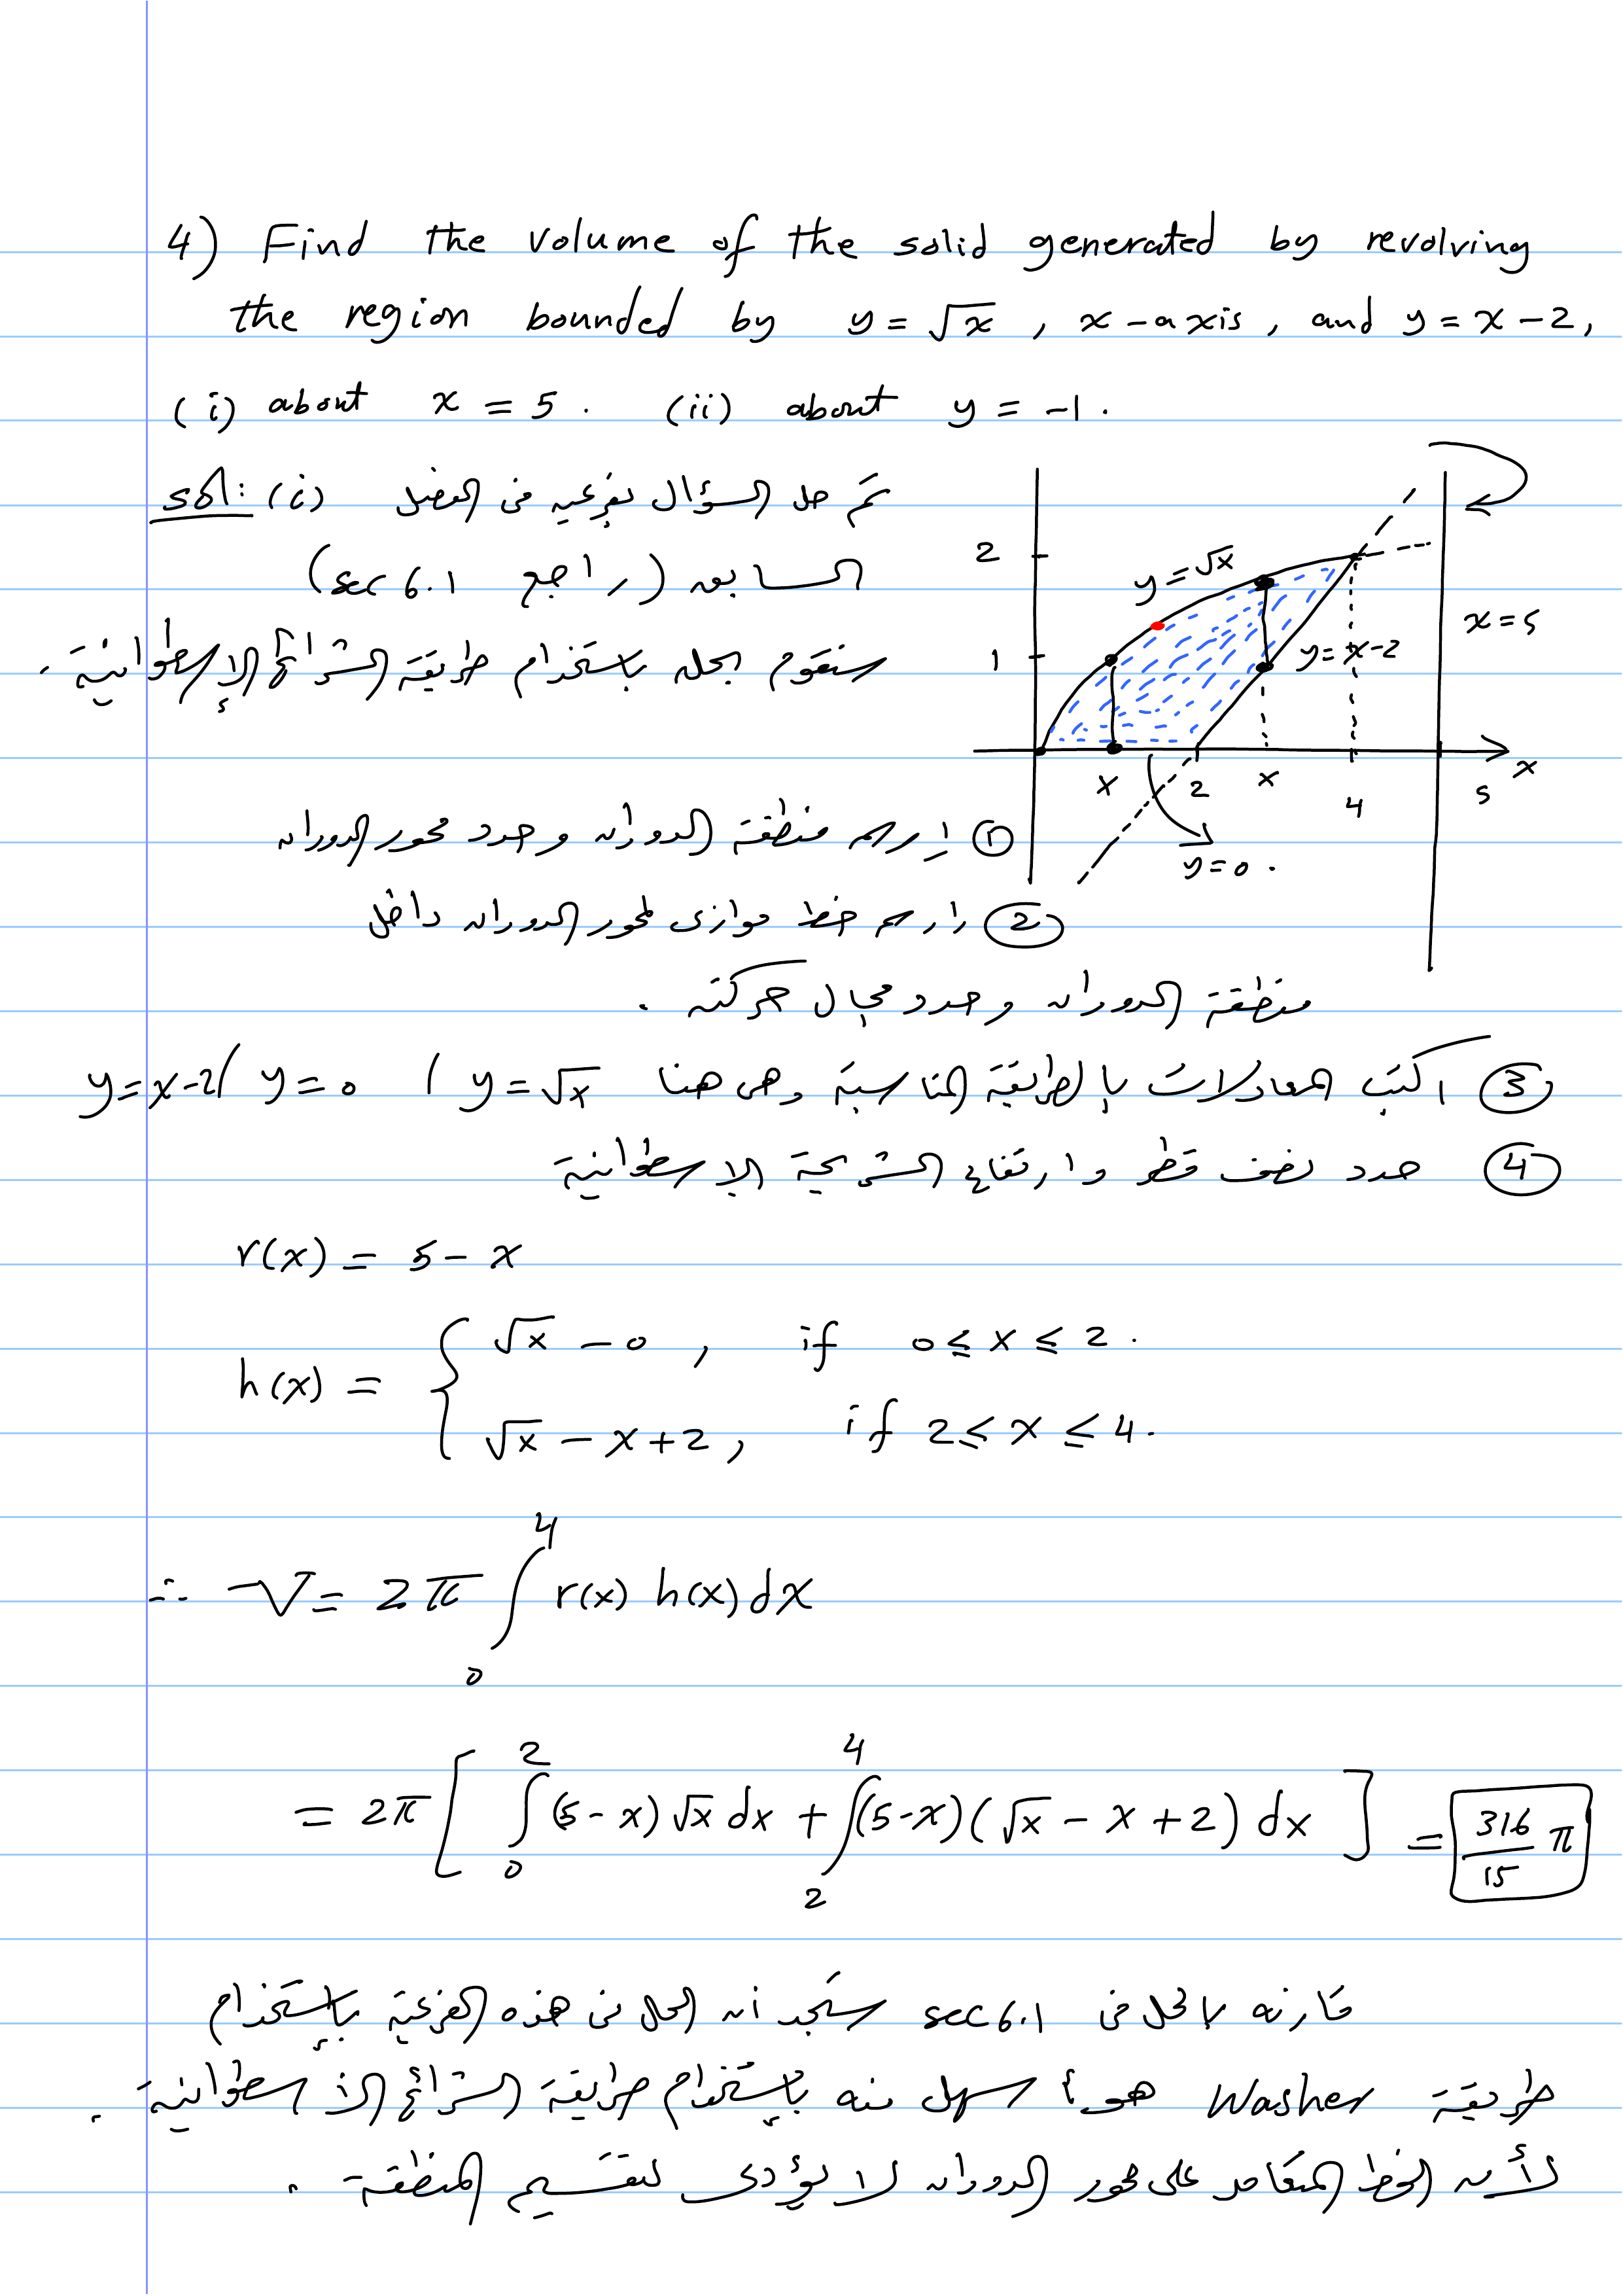 4) Find the volume of the solid generated by revolving
the region bounded by y = √x , x-axis, and y = x-2,
(i) about x = 5 . (ii) about y = -1 .
sol: (i) تم حل السؤال بفرعيه في الفصل
السابق (راجع sec 6.1)
سنقوم بحله باستخدام طريقة الشرائح الإسطوانية .
2
1
y = √x
y = x-2
x = 5
x
2
x
4
5
x
y = 0 .
① ارسم منطقة الدوران وحدد محور الدوران
② ارسم خط موازي لمحور الدوران داخل
منطقة الدوران وحدد مجال حركته .
③ اكتب المعادلات بالطريقة المناسبة وهي هنا y = √x / y = 0 / y = x-2
④ حدد نصف قطر وارتفاع الشريحة الاسطوانية
r(x) = 5 - x
h(x) = { √x - 0 , if 0 ≤ x ≤ 2 .
√x - x + 2 , if 2 ≤ x ≤ 4 .
∴ V = 2π ∫₀⁴ r(x) h(x) dx
= 2π [ ∫₀² (5-x) √x dx + ∫₂⁴ (5-x)(√x - x + 2) dx ] = 316/15 π
قارنه بالحل في sec 6.1 ستجد أن الحل في هذه الفرعية بإستخدام
طريقة Washer هو أسهل منه بإستخدام طريقة الشرائح الاسطوانية .
لأن الخط المتعامد على محور الدوران لا يؤدي لتقسيم المنطقة .